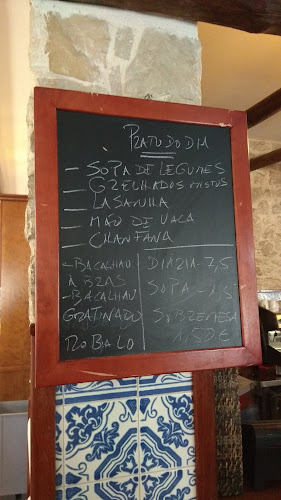 PRATO DO DIA
- SOPA DE LEGUMES
- GRELHADOS MISTOS
- LASANHA
- MÃO DE VACA
- CHANFANA
- BACALHAU
À BRÁS
- BACALHAU
GRATINADO
ROBALO
DIÁRIA - 7,5
SOPA - 1,5
SOBREMESA
1,50 €